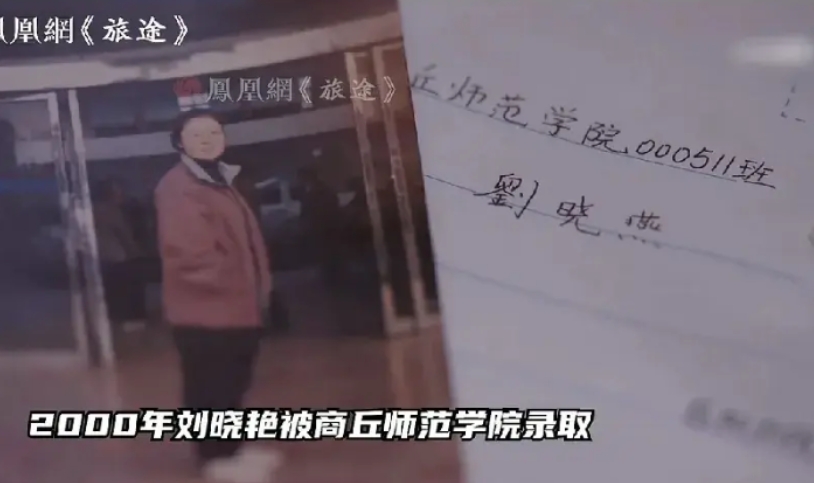 凰網《旅途》
鳳凰網《旅途》
丘师范学院、000511班
劉晓燕
2000年刘晓艳被商丘师范学院录取